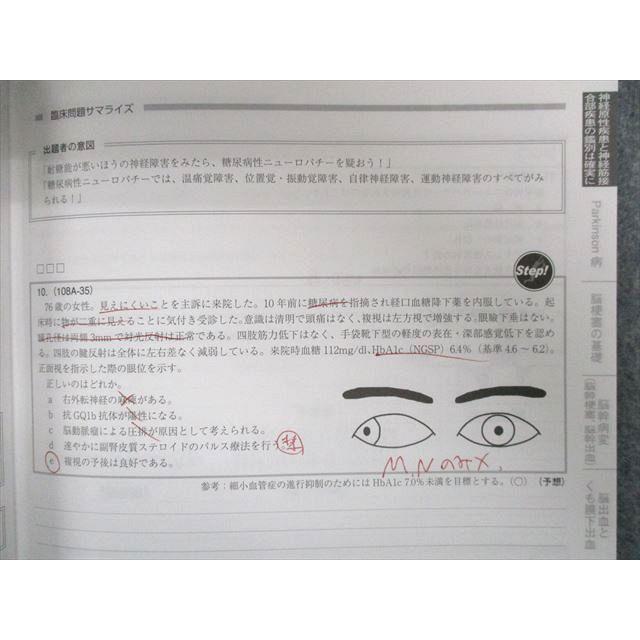 臨床問題サマライズ
出題者の意図
「耐糖能が悪いほうの神経障害をみたら、糖尿病性ニューロパチーを疑おう！」
「糖尿病性ニューロパチーでは、温痛覚障害、位置覚・振動覚障害、自律神経障害、運動神経障害のすべてがみ
られる！」
Step!
10.（108A-35）
76歳の女性。見えにくいことを主訴に来院した。10年前に糖尿病を指摘され経口血糖降下薬を内服している。起
床時に物が二重に見えることに気付き受診した。意識は清明で頭痛はなく、複視は左方視で増強する。眼瞼下垂はない。
瞳孔径は両側3mmで対光反射は正常である。四肢筋力低下はなく、手袋靴下型の軽度の表在・深部感覚低下を認め
る。四肢の腱反射は全体に左右差なく減弱している。来院時血糖112mg/dl、HbA1c（NGSP）6.4%（基準4.6～6.2）。
正面視を指示した際の眼位を示す。
正しいのはどれか。
a 右外転神経の麻痺がある。
b 抗GQ1b抗体が陽性になる。
c 脳動脈瘤による圧排が原因として考えられる。
d 速やかに副腎皮質ステロイドのパルス療法を行う。
e 複視の予後は良好である。
参考：細小血管症の進行抑制のためにはHbA1c 7.0%未満を目標とする。（○）（予想）
神経原性疾患と神経筋接
合部疾患の鑑別は確実に
Parkinson病
脳梗塞の基礎
脳幹病変
（脳幹梗塞、脳幹出血）
脳出血と
くも膜下出血